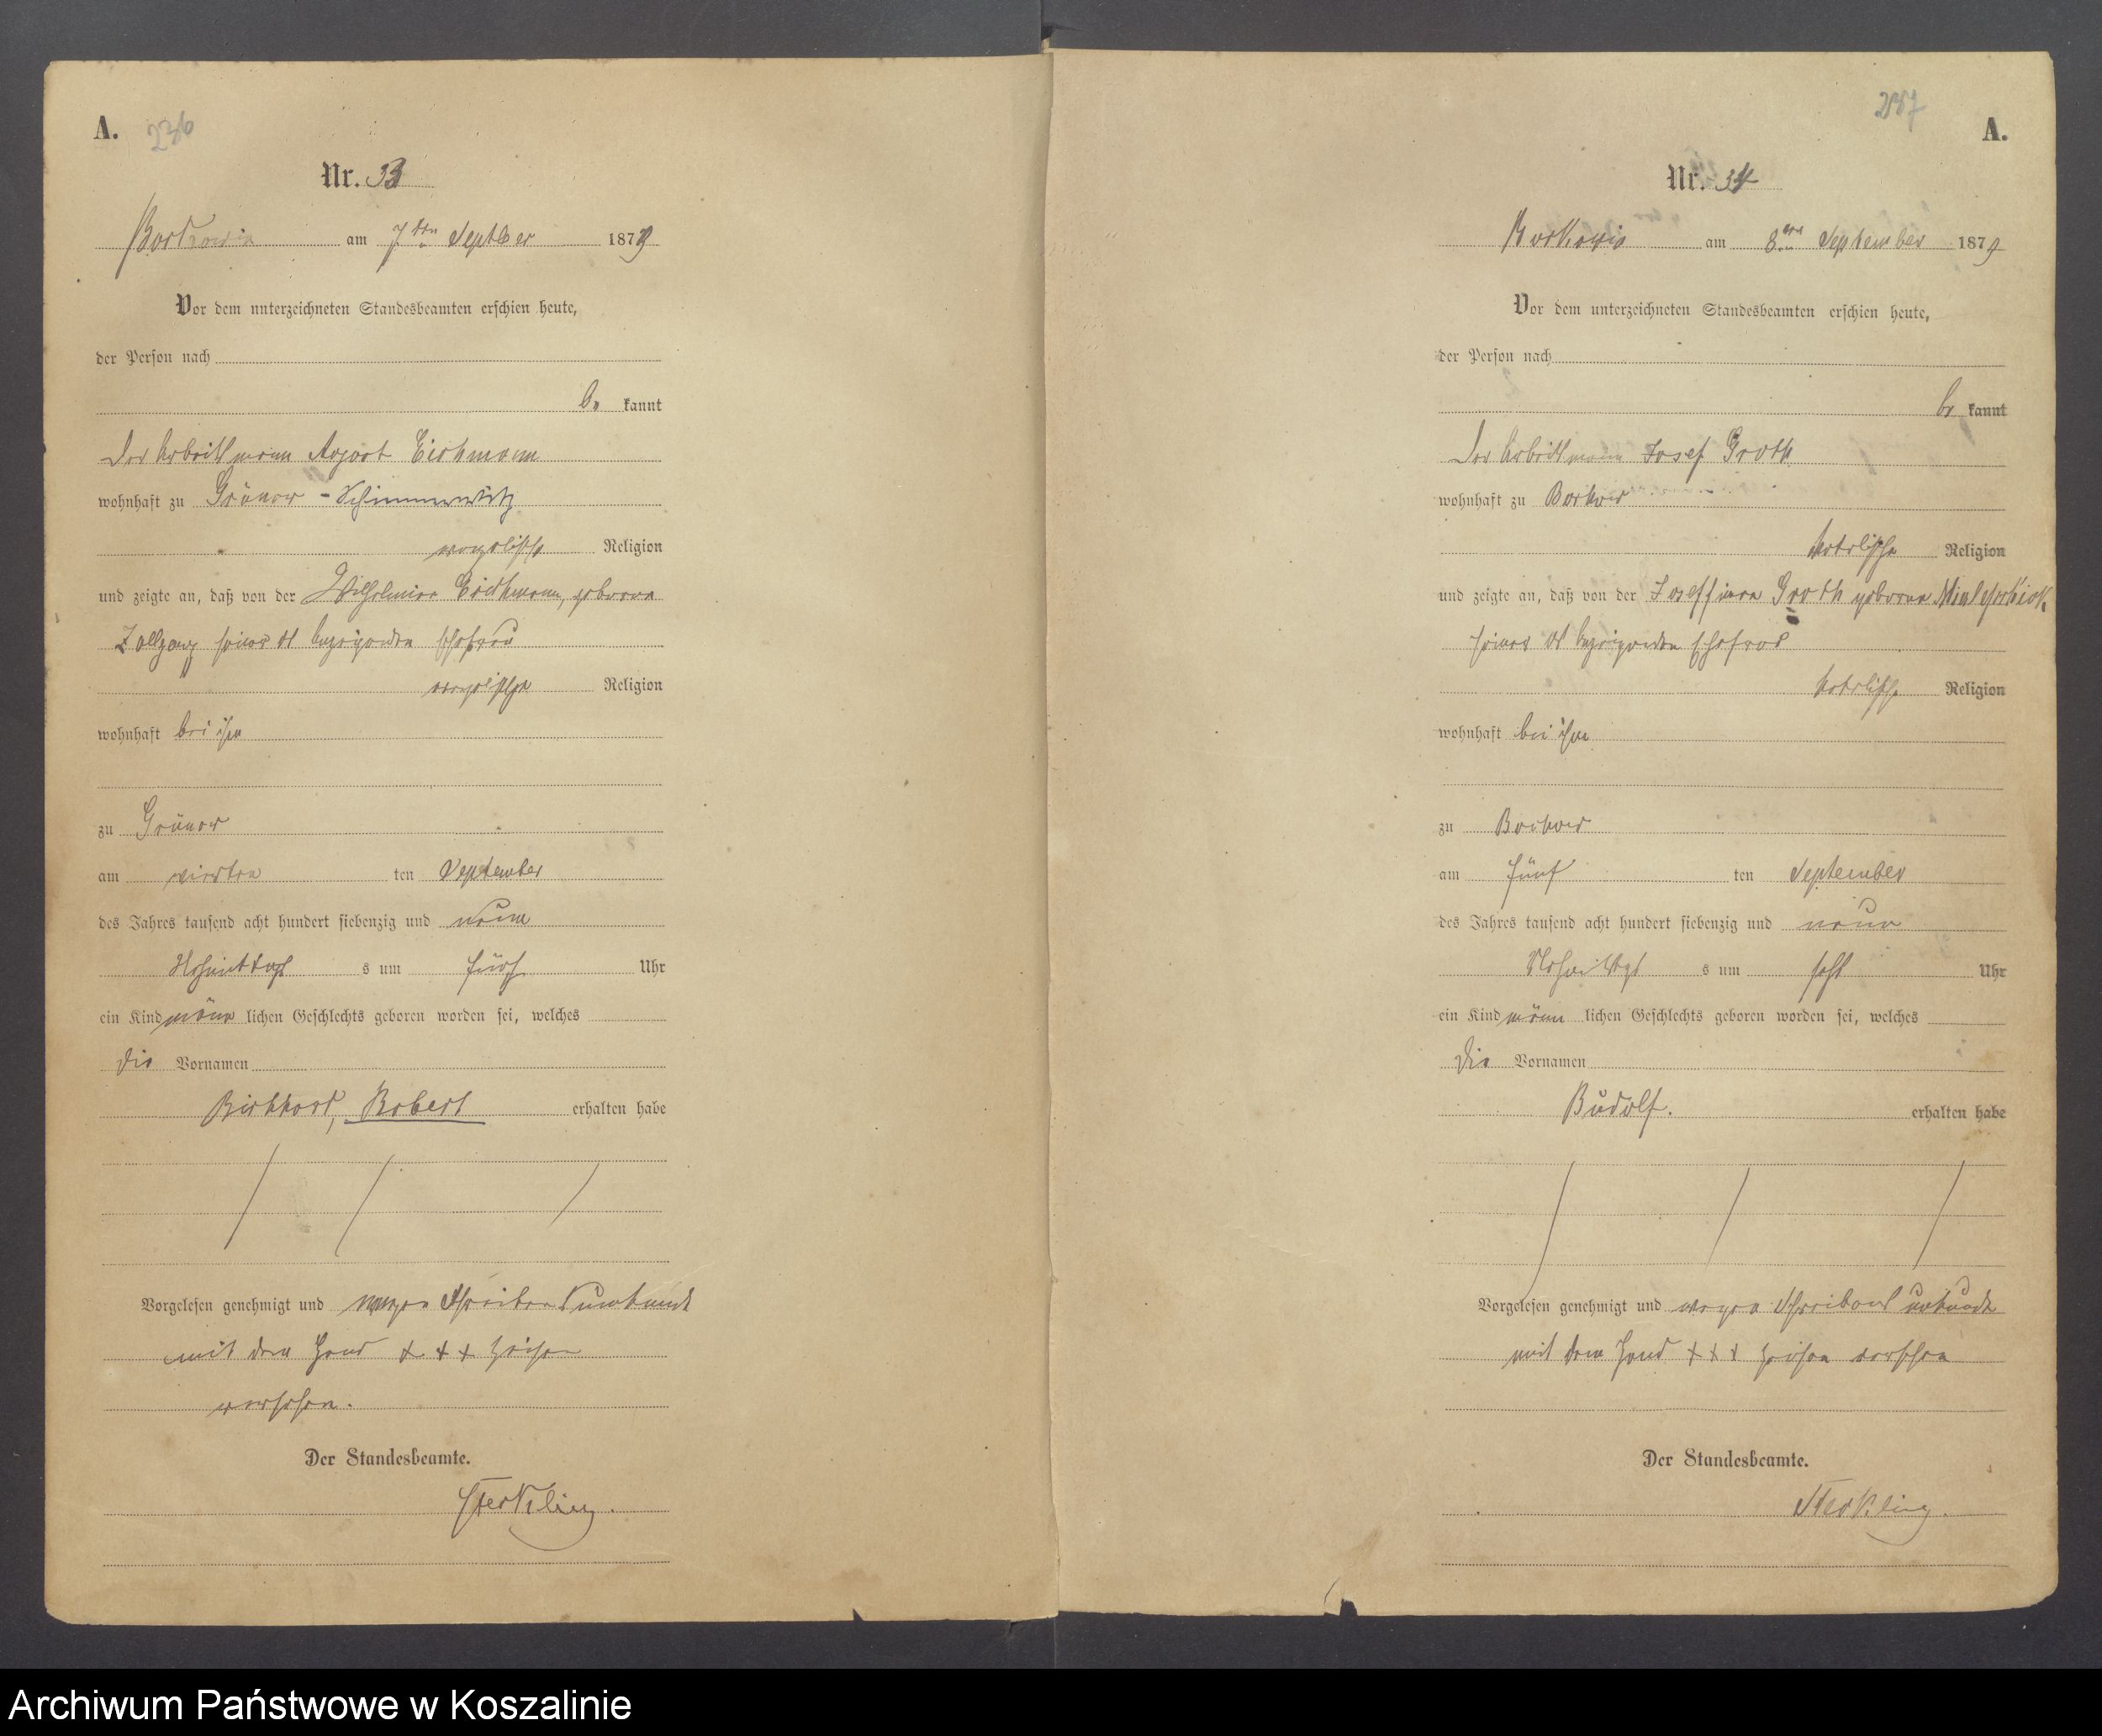 A.
236
Nr. 33
Borkowin am 7ten September 1879
Vor dem unterzeichneten Standesbeamten erschien heute,
der Person nach
be kannt
Der Arbeitsmann August Eichmann
wohnhaft zu Grünow -
evangelischer Religion
und zeigte an, daß von der Wilhelmine Eichmann, geborene
seiner Ehefrau
evangelischer Religion
wohnhaft bei ihm
zu Grünow
am vierten ten September
des Jahres tausend acht hundert siebenzig und neun
Nachmittag s um fünf Uhr
ein Kind männ lichen Geschlechts geboren worden sei, welches
die Vornamen
Robert erhalten habe
Vorgelesen genehmigt und wegen Schreibensunkunde
mit dem Hand + + + Zeichen
versehen.
Der Standesbeamte.
Sterkling.
A.
Nr. 34
Borkowin am 8ten September 1879
Vor dem unterzeichneten Standesbeamten erschien heute,
der Person nach
be kannt
Der Arbeitsmann Josef Groth
wohnhaft zu Borkow
katolischer Religion
und zeigte an, daß von der Joseffiene Groth geborene
seiner Ehefrau
katolischer Religion
wohnhaft bei ihm
zu Borkow
am fünf ten September
des Jahres tausend acht hundert siebenzig und neun
Nachmittag s um Uhr
ein Kind männ lichen Geschlechts geboren worden sei, welches
die Vornamen
Rudolf. erhalten habe
Vorgelesen genehmigt und wegen Schreibens unkunde
mit dem Hand + + + Zeichen versehen
Der Standesbeamte.
Sterkling.
Archiwum Państwowe w Koszalinie